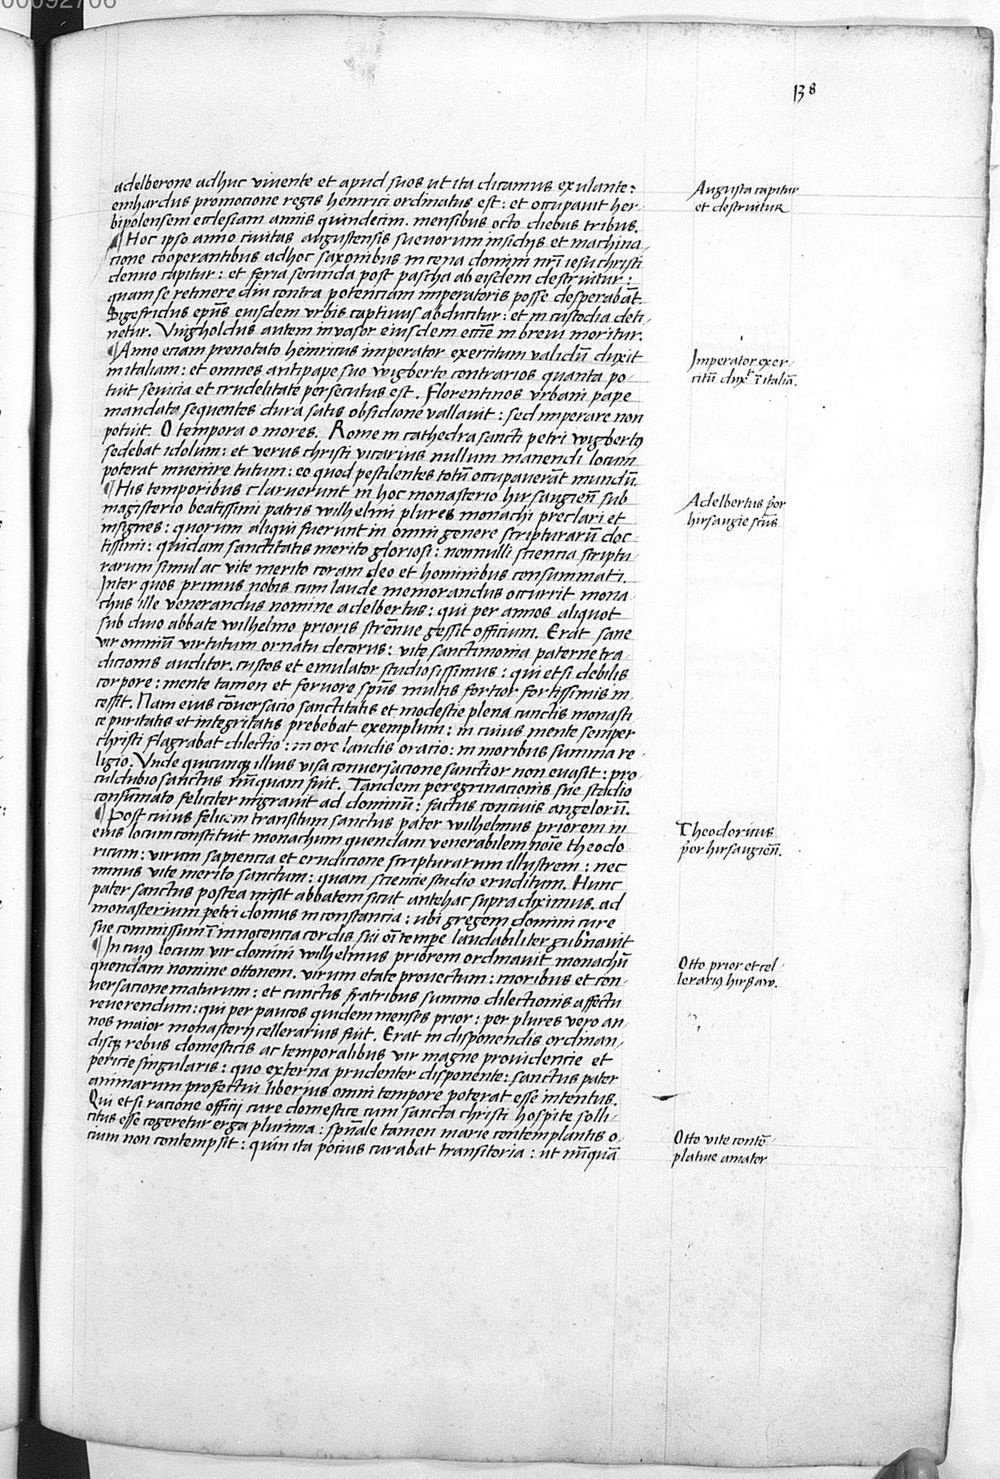 00092706
138
adelberone adhuc viuente et apud suos ut ita dicamus exulante:
emhardus promocione regis heinrici ordinatus est: et occupauit her-
bipolensem ecclesiam annis quindecim. mensibus octo diebus tribus.
¶ Hoc ipso anno ciuitas augustensis sueuorum insidijs et machina
cione cooperantibus adhoc saxonibus in cena domini nr̄i iesu christi
denuo capitur: et feria secunda post pascha ab eisdem destruitur:
quam se retinere diu contra potenciam imperatoris posse desperabāt.
Sigefridus ep̄us eiusdem vrbis captiuus abducitur: et in custodia deti
netur. Vuigholdus autem inuasor eiusdem eccl̄ie in breui moritur.
¶ Anno eciam prenotato heinricus imperator exercitum validū duxit
in italiam: et omnes antipape suo wigberto contrarios quanta po-
tuit seuicia et crudelitate persecutus est. Florentinos vrbani pape
mandata sequentes dura satis obsidione vallauit: sed imperare non
potuit. O tempora o mores. Rome in cathedra sancti petri wigbertꝰ
sedebat idolum: et verus christi vicarius nullum manendi locum
poterat inuenire tutum: eo quod pestilentes totū occupauerāt mundū.
¶ His temporibus claruerunt in hoc monasterio hirsaugien̄ sub
magisterio beatissimi patris wilhelmi plures monachi preclari et
insignes: quorum aliqui fuerunt in omni genere scripturarū doc-
tissimi: quidam sanctitatis merito gloriosi: nonnulli sciencia scriptu-
rarum simul ac vite merito coram deo et hominibus consummati.
Inter quos primus nobis cum laude memorandus occurrit mona
chus ille venerandus nomine adelbertus: qui per annos aliquot
sub diuo abbate wilhelmo prioris strēnue gessit officium. Erat sane
vir omniū virtutum ornatu decorus: vite sanctimonia paterne tra
dicionis auditor. custos et emulator studiosissimus: qui etsi debilis
corpore: mente tamen et feruore sp̄us multis fortior fortissimis in
cessit. Nam eius cōuersacio sanctitatis et modestie plena cunctis monasti
ce puritatis et integritatis prebebat exemplum: in cuius mente semper
christi flagrabat dilectio: in ore laudis oracio: in moribus summa re-
ligio. Vnde quicunqꝫ illius visa conuersacione sanctior non euasit: pro-
culdubio sanctus nūquam fuit. Tandem peregrinacionis sue stadio
consūmato feliciter migrauit ad dominū: factus conciuis angelorū.
¶ Post cuius felicem transitum sanctus pater wilhelmus priorem in
eius locum constituit monachum quendam venerabilem noīe theodo
ricum: virum sapiencia et erudicione scripturarum illustrem: nec
minus vite merito sanctum: quam sciencie studio eruditum. Hunc
pater sanctus postea misit abbatem sicut antehac supra diximus. ad
monasterium petri domus in constancia: ubi gregem domini cure
sue commissum ī innocencia cordis sui oī tempe laudabiliter gub̄nauit
¶ In cuiꝰ locum vir domini wilhelmus priorem ordinauit monachū
quendam nomine ottonem. virum etate prouectum: moribus et con-
uersacione maturum: et cunctis fratribus summo dilectionis affectu
reuerendum: qui per paucos quidem menses prior: per plures vero an
nos maior monasterij cellerarius fuit. Erat in disponendis ordinan-
disqꝫ rebus domesticis ac temporalibus vir magne prouidencie et
pericie singularis: quo externa prudenter disponente: sanctus pater
animarum profectui liberius omni tempore poterat esse intentus.
Qui etsi racione officij cure domestice cum sancta christi hospite solli-
citus esse cogeretur erga plurima: spūale tamen marie contemplantis o-
cium non contempsit: quin ita pocius curabat transitoria: ut nūquā
Augusta capitur
et destruitur
Imperator exer-
citū duxt ī italiā.
Adelbertus p̄or
hirsaugie scūs
Theodoricus
p̄or hirsaugien̄.
Otto prior et cel-
lerariꝰ hirsaw.
Otto vite contē
platiue amator